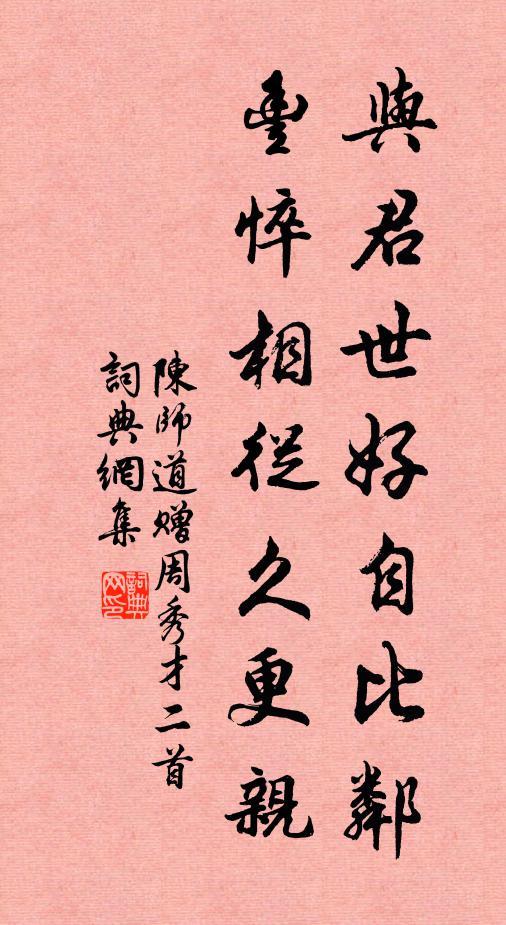 與君世好自比鄰
豊悴相從久更親
陳師道贈周秀才二首
詞典網集
詞典網印